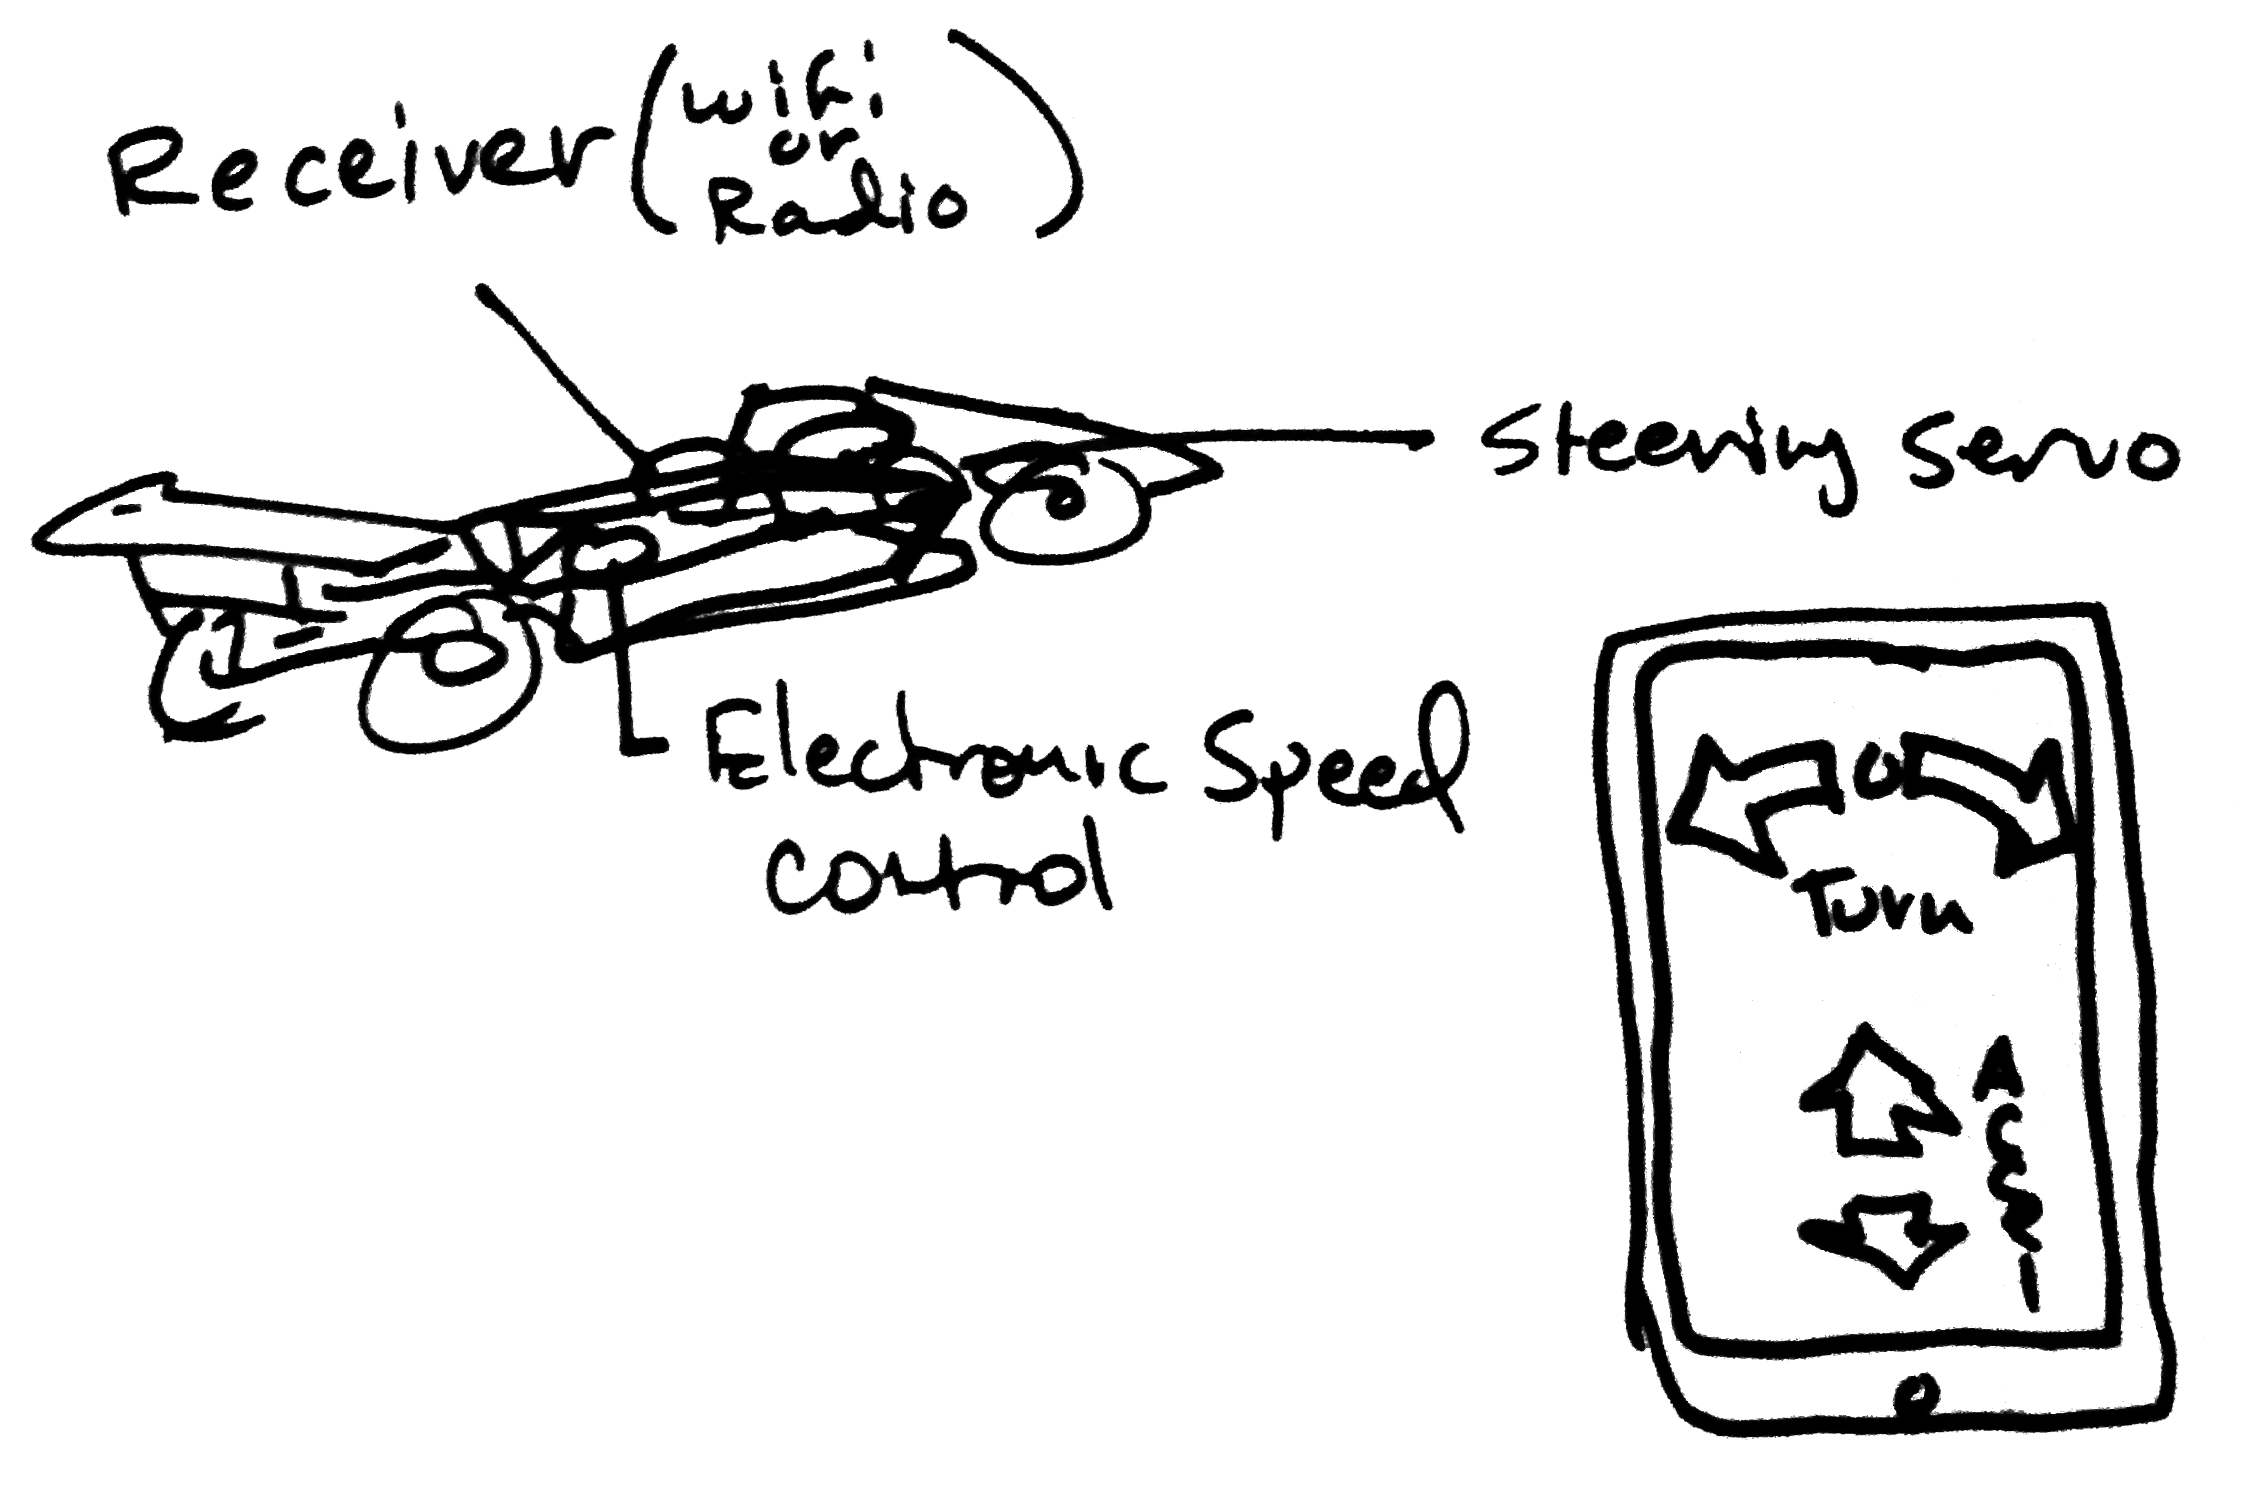 Receiver (wifi
or
Radio)
Steering Servo
Electronic Speed
Control
Turn